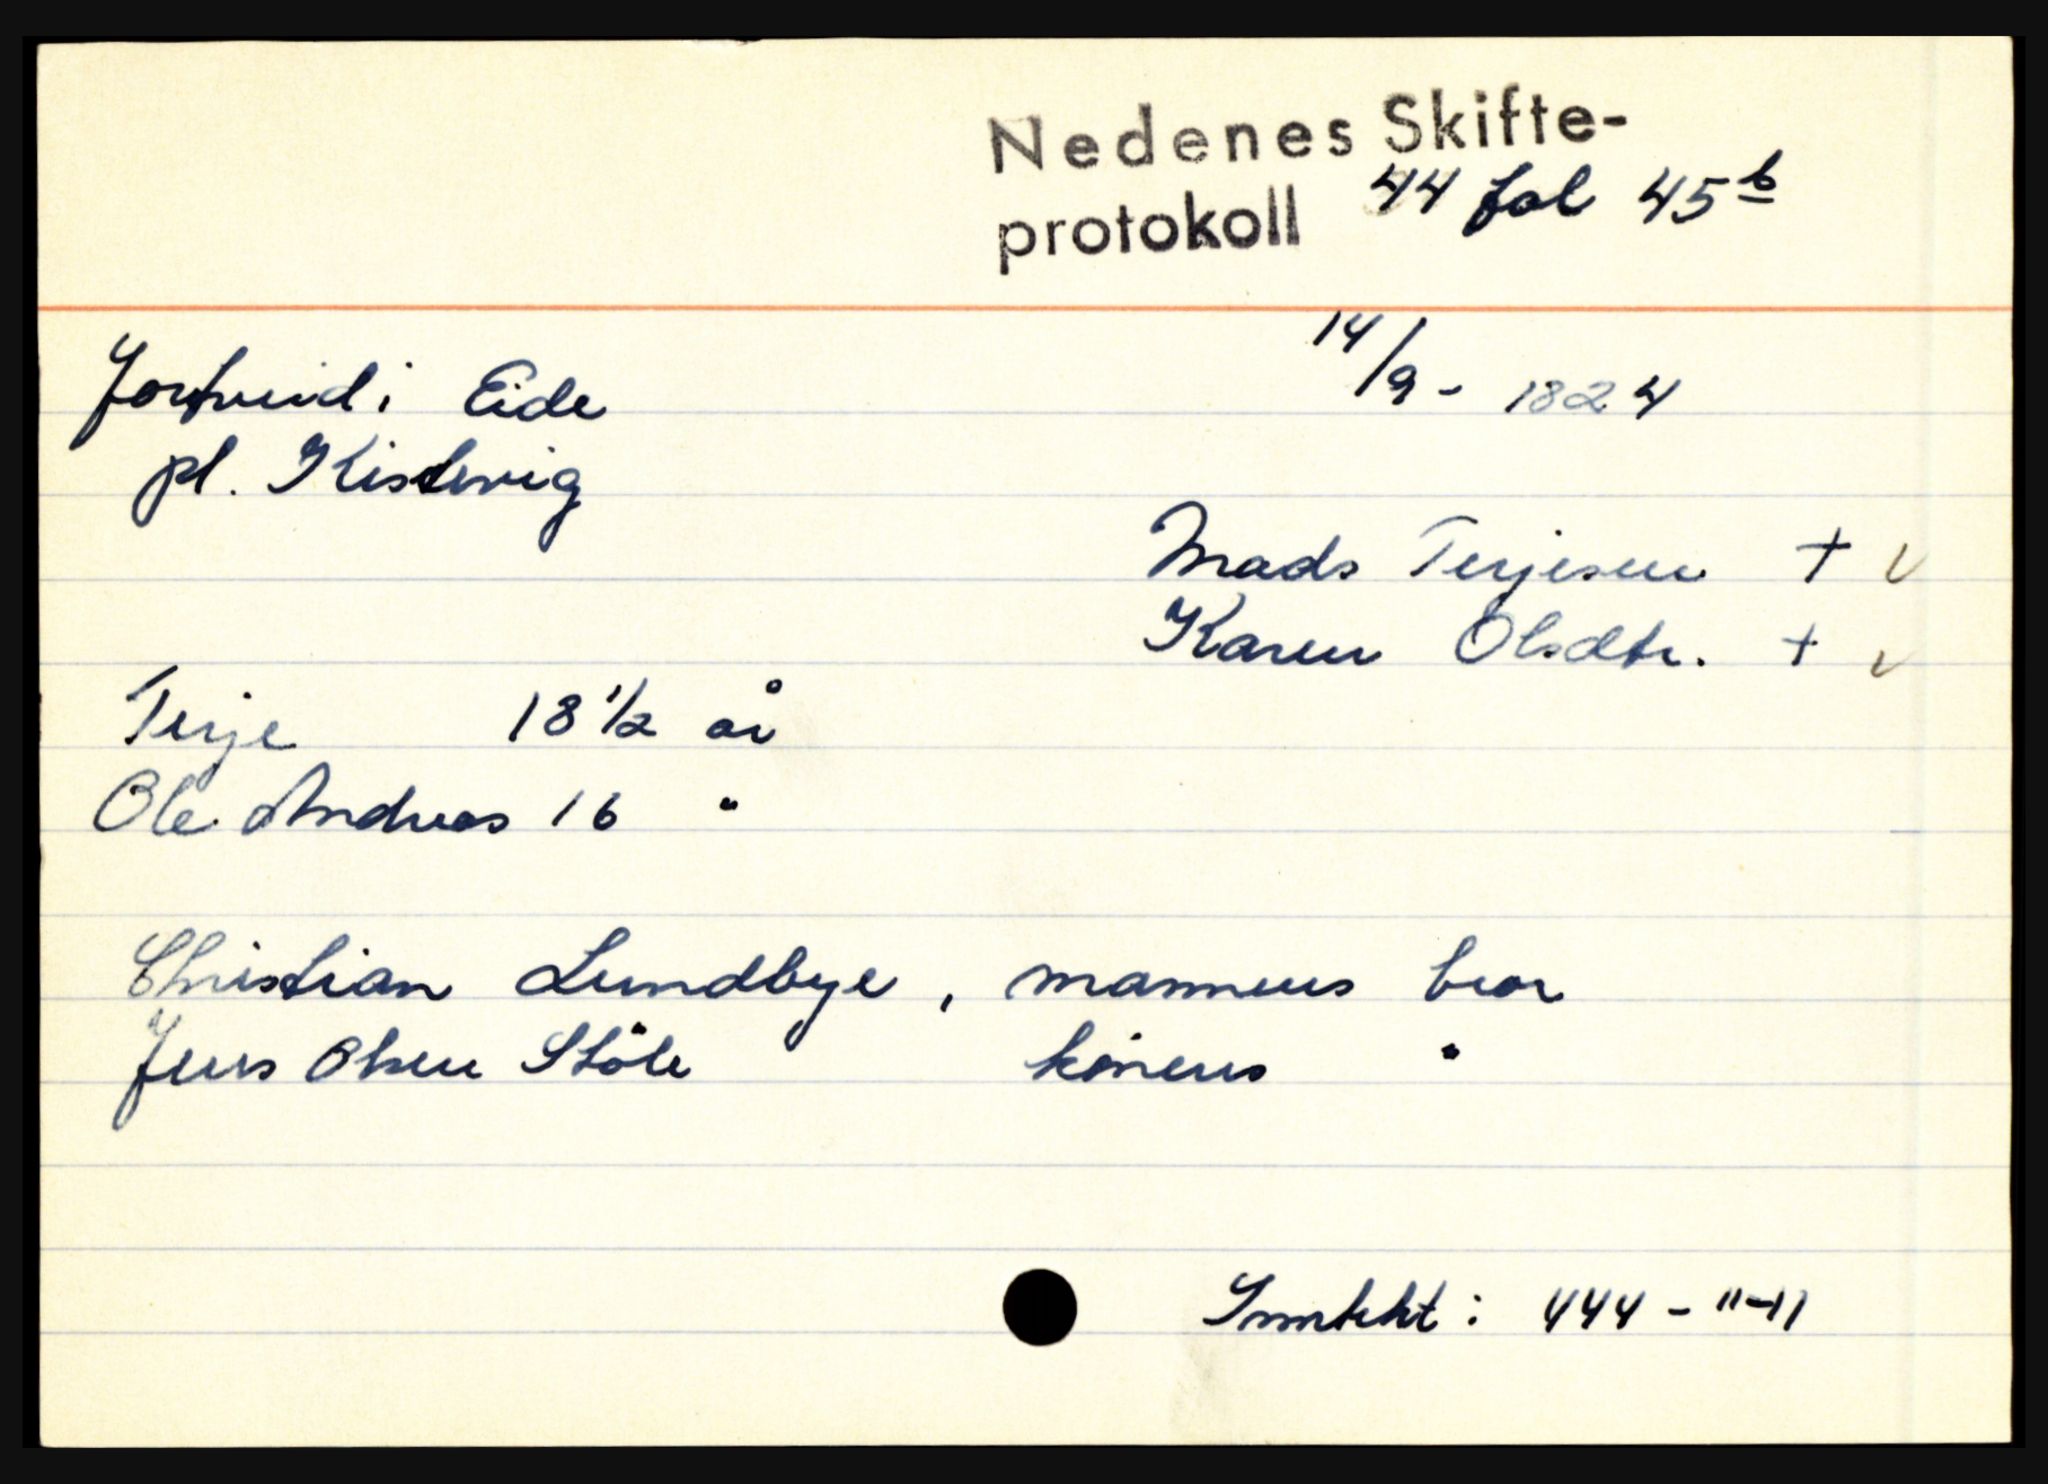 Nedenes Skifte-
protokoll 44 fol 45b
Jortveid i Eide 14/9 - 1824
pl. Kistevig
Mads Terjesen + v
Karen Olsdtr. + v
Terje 18 1/2 år
Ole Andreas 16 "
Christian Lundbye, mannens bror
Jens Olsen Støle konens "
Inntekt: 444 - "-11